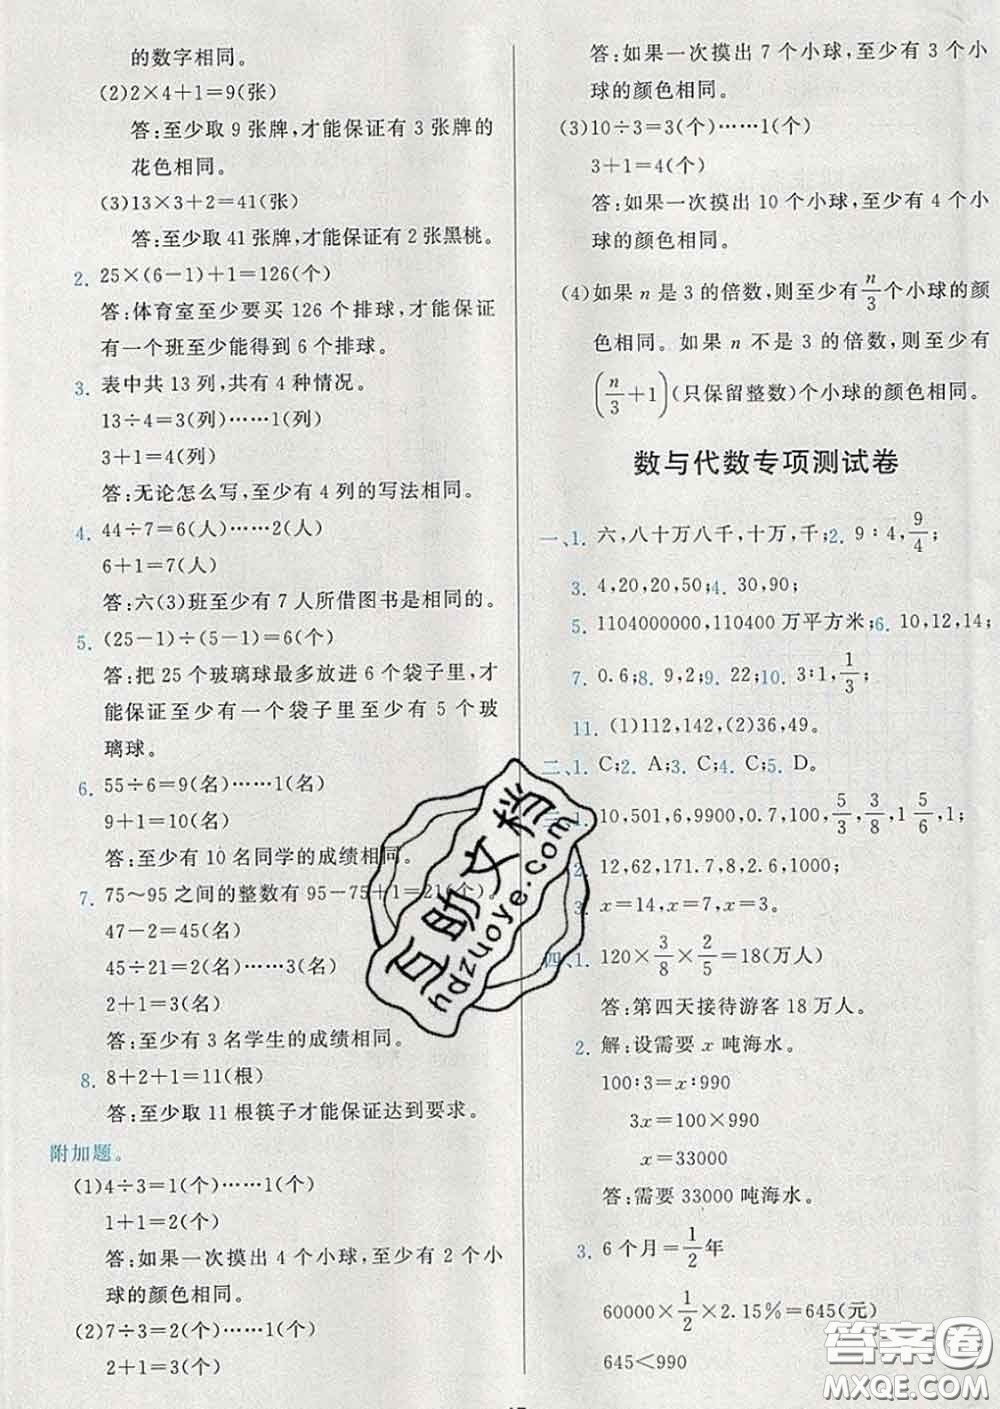 的数字相同。
(2)2×4+1=9(张)
答:至少取 9 张牌,才能保证有 3 张牌的
花色相同。
(3)13×3+2=41(张)
答:至少取 41 张牌,才能保证有 2 张黑桃。
2. 25×(6-1)+1=126(个)
答:体育室至少要买 126 个排球,才能保证
有一个班至少能得到 6 个排球。
3. 表中共 13 列,共有 4 种情况。
13÷4=3(列)……1(列)
3+1=4(列)
答:无论怎么写,至少有 4 列的写法相同。
4. 44÷7=6(人)……2(人)
6+1=7(人)
答:六(3)班至少有 7 人所借图书是相同的。
5. (25-1)÷(5-1)=6(个)
答:把 25 个玻璃球最多放进 6 个袋子里,才
能保证至少有一个袋子里至少有 5 个玻
璃球。
6. 55÷6=9(名)……1(名)
9+1=10(名)
答:至少有 10 名同学的成绩相同。
7. 75～95 之间的整数有 95-75+1=21(个)。
47-2=45(名)
45÷21=2(名)……3(名)
2+1=3(名)
答:至少有 3 名学生的成绩相同。
8. 8+2+1=11(根)
答:至少取 11 根筷子才能保证达到要求。
附加题。
(1)4÷3=1(个)……1(个)
1+1=2(个)
答:如果一次摸出 4 个小球,至少有 2 个小
球的颜色相同。
(2)7÷3=2(个)……1(个)
2+1=3(个)
答:如果一次摸出 7 个小球,至少有 3 个小
球的颜色相同。
(3)10÷3=3(个)……1(个)
3+1=4(个)
答:如果一次摸出 10 个小球,至少有 4 个小
球的颜色相同。
(4)如果 n 是 3 的倍数,则至少有 n/3 个小球的颜
色相同。如果 n 不是 3 的倍数,则至少有
(n/3+1)(只保留整数)个小球的颜色相同。
数与代数专项测试卷
一、1. 六,八十万八千,十万,千;2. 9∶4,9/4;
3. 4,20,20,50;4. 30,90;
5. 1104000000,110400 万平方米;6. 10,12,14;
7. 0.6;8. 9,2;9. 22;10. 3∶1,1/3;
11. (1)112,142,(2)36,49。
二、1. C;2. A;3. C;4. C;5. D。
三、1. 10,501,6,9900,0.7,100,5/3,3/8,1 5/6,1;
2. 12,62,171.7,8,2.6,1000;
3. x=14,x=7,x=3。
四、1. 120×3/8×2/5=18(万人)
答:第四天接待游客 18 万人。
2. 解:设需要 x 吨海水。
100∶3=x∶990
3x=100×990
x=33000
答:需要 33000 吨海水。
3. 6 个月=1/2年
60000×1/2×2.15%=645(元)
645<990
互助文档
ypzuoye.com
答案圈
MXQE.COM